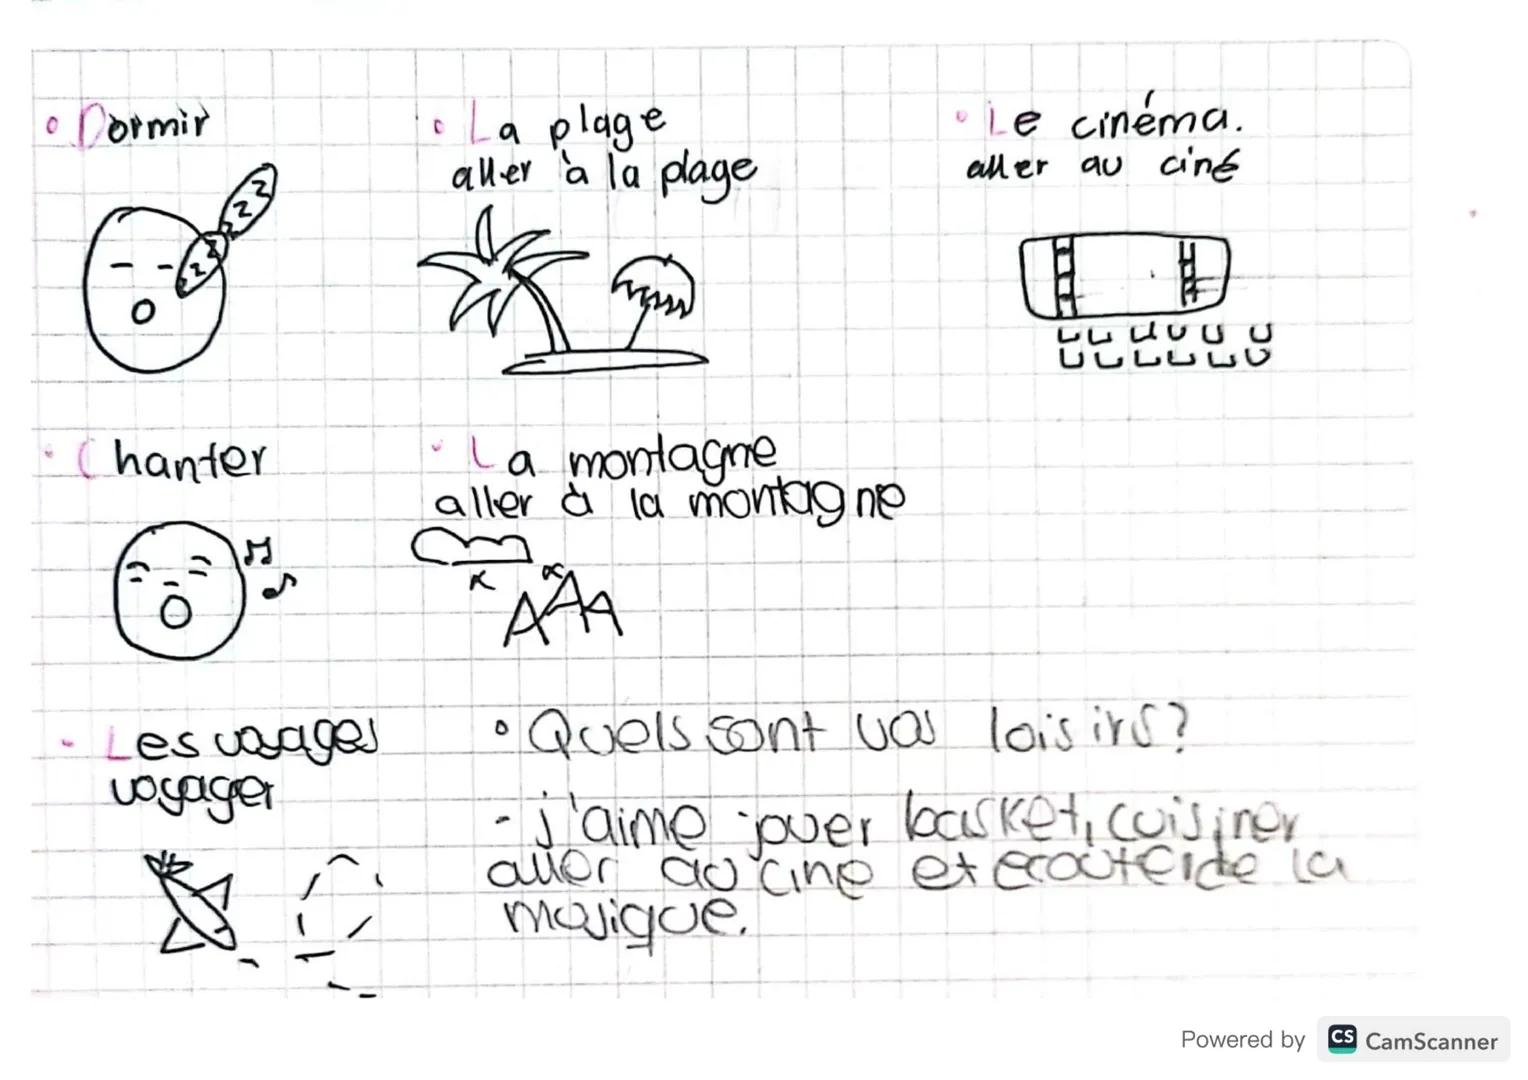 • Dormir
• La plage
aller à la plage
• Le cinéma.
aller au ciné
zzz
zzz
• Chanter
• La montagne
aller à la montagne
- Les voyages
voyager
• Quels sont vos loisirs?
- j'aime jouer basket, cuisiner
aller au cine et ecouter de la
musique.
Powered by CS CamScanner